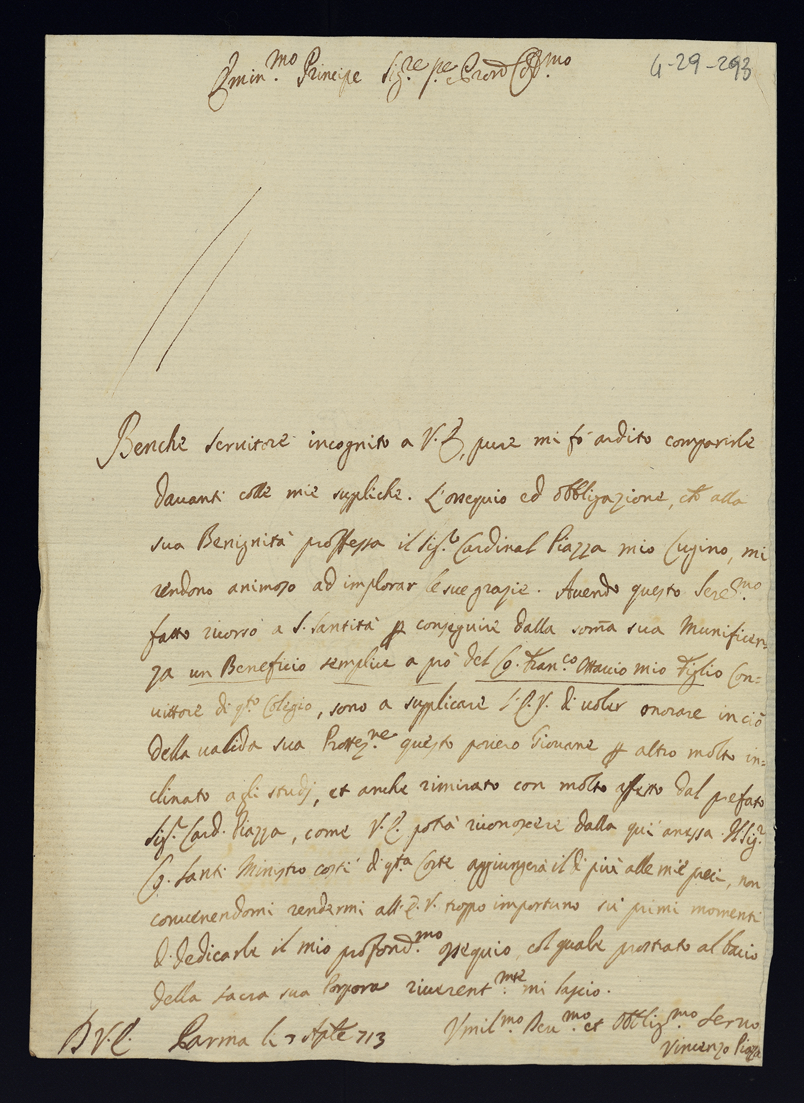 Emin.mo Principe Sig.re
4-29-293
Benche seruitore incognito a V. E., pure mi fò ardito comparirle
dauanti colle mie suppliche. L'ossequio ed obbligazione, che alla
sua Benignità proffessa il Sig.r Cardinal Piazza mio Cugino, mi
rendono animoso ad implorar le sue grazie. Auendo questo
fatto ricorso a S. Santità per conseguire dalla som̃a sua Munificen-
za un Beneficio semplice a prò del Co. Fran.co Ottauio mio Figlio Con-
uittore di q.to Colegio, sono a supplicare l'E. V. di uoler onorare in ciò
della ualida sua Prottez.ne questo pouero Giouane per altro molto in-
clinato agli studj, et anche rimirato con molto affetto dal prefato
Sig.r Card. Piazza, come V. E. potrà riconoscere dalla qui anessa. Il Sig.r
Co. Santi Ministro costì di q.ta Corte aggiungerà il di più alle mie preci, non
conuenendomi rendermi all'E. V. troppo importuno sù primi momenti
di dedicarle il mio profond.mo ossequio, col quale prostrato al bacio
della sacra sua Porpora riuerent.mte mi lascio.
D V. E. Parma li 7 Aple 713
Vmil.mo Deu.mo et Obblig.mo Seruo
Vincenzo Piazza